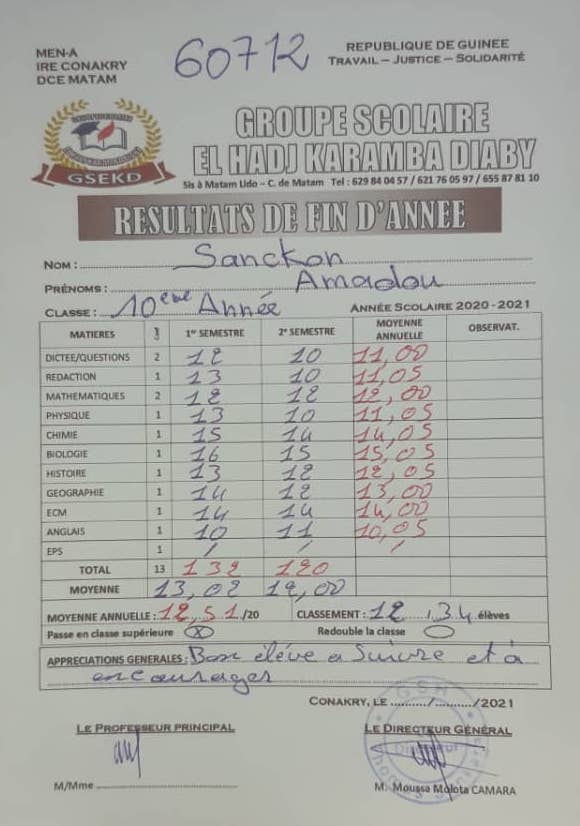 MEN-A
IRE CONAKRY
DCE MATAM
60712
REPUBLIQUE DE GUINEE
TRAVAIL – JUSTICE – SOLIDARITÉ
GSEKD
GROUPE SCOLAIRE
EL HADJ KARAMBA DIABY
Sis à Matam Lido – C. de Matam Tel : 629 84 04 57 / 621 76 05 97 / 655 87 81 10
RESULTATS DE FIN D'ANNEE
NOM : Sanckon
PRÉNOMS : Amadou
CLASSE : 10ème Année ANNÉE SCOLAIRE 2020 -2021
MATIERES 1er SEMESTRE 2e SEMESTRE MOYENNE ANNUELLE OBSERVAT.
DICTEE/QUESTIONS 2 12 10 11,00
REDACTION 1 13 10 11,05
MATHEMATIQUES 2 12 12 12,00
PHYSIQUE 1 13 10 11,05
CHIMIE 1 15 14 14,05
BIOLOGIE 1 16 15 15,05
HISTOIRE 1 13 12 12,05
GEOGRAPHIE 1 14 12 13,00
ECM 1 14 14 14,00
ANGLAIS 1 10 11 10,05
EPS 1 / / /
TOTAL 13 132 120
MOYENNE 13,02 12,00
MOYENNE ANNUELLE : 12,51 /20 CLASSEMENT : 12 /34 élèves
Passe en classe supérieure X Redouble la classe
APPRECIATIONS GENERALES : Bon élève a Suivre et à
encourager
CONAKRY, LE ........../........../2021
LE PROFESSEUR PRINCIPAL LE DIRECTEUR GÉNÉRAL
Directeur
M/Mme M. Moussa Molota CAMARA